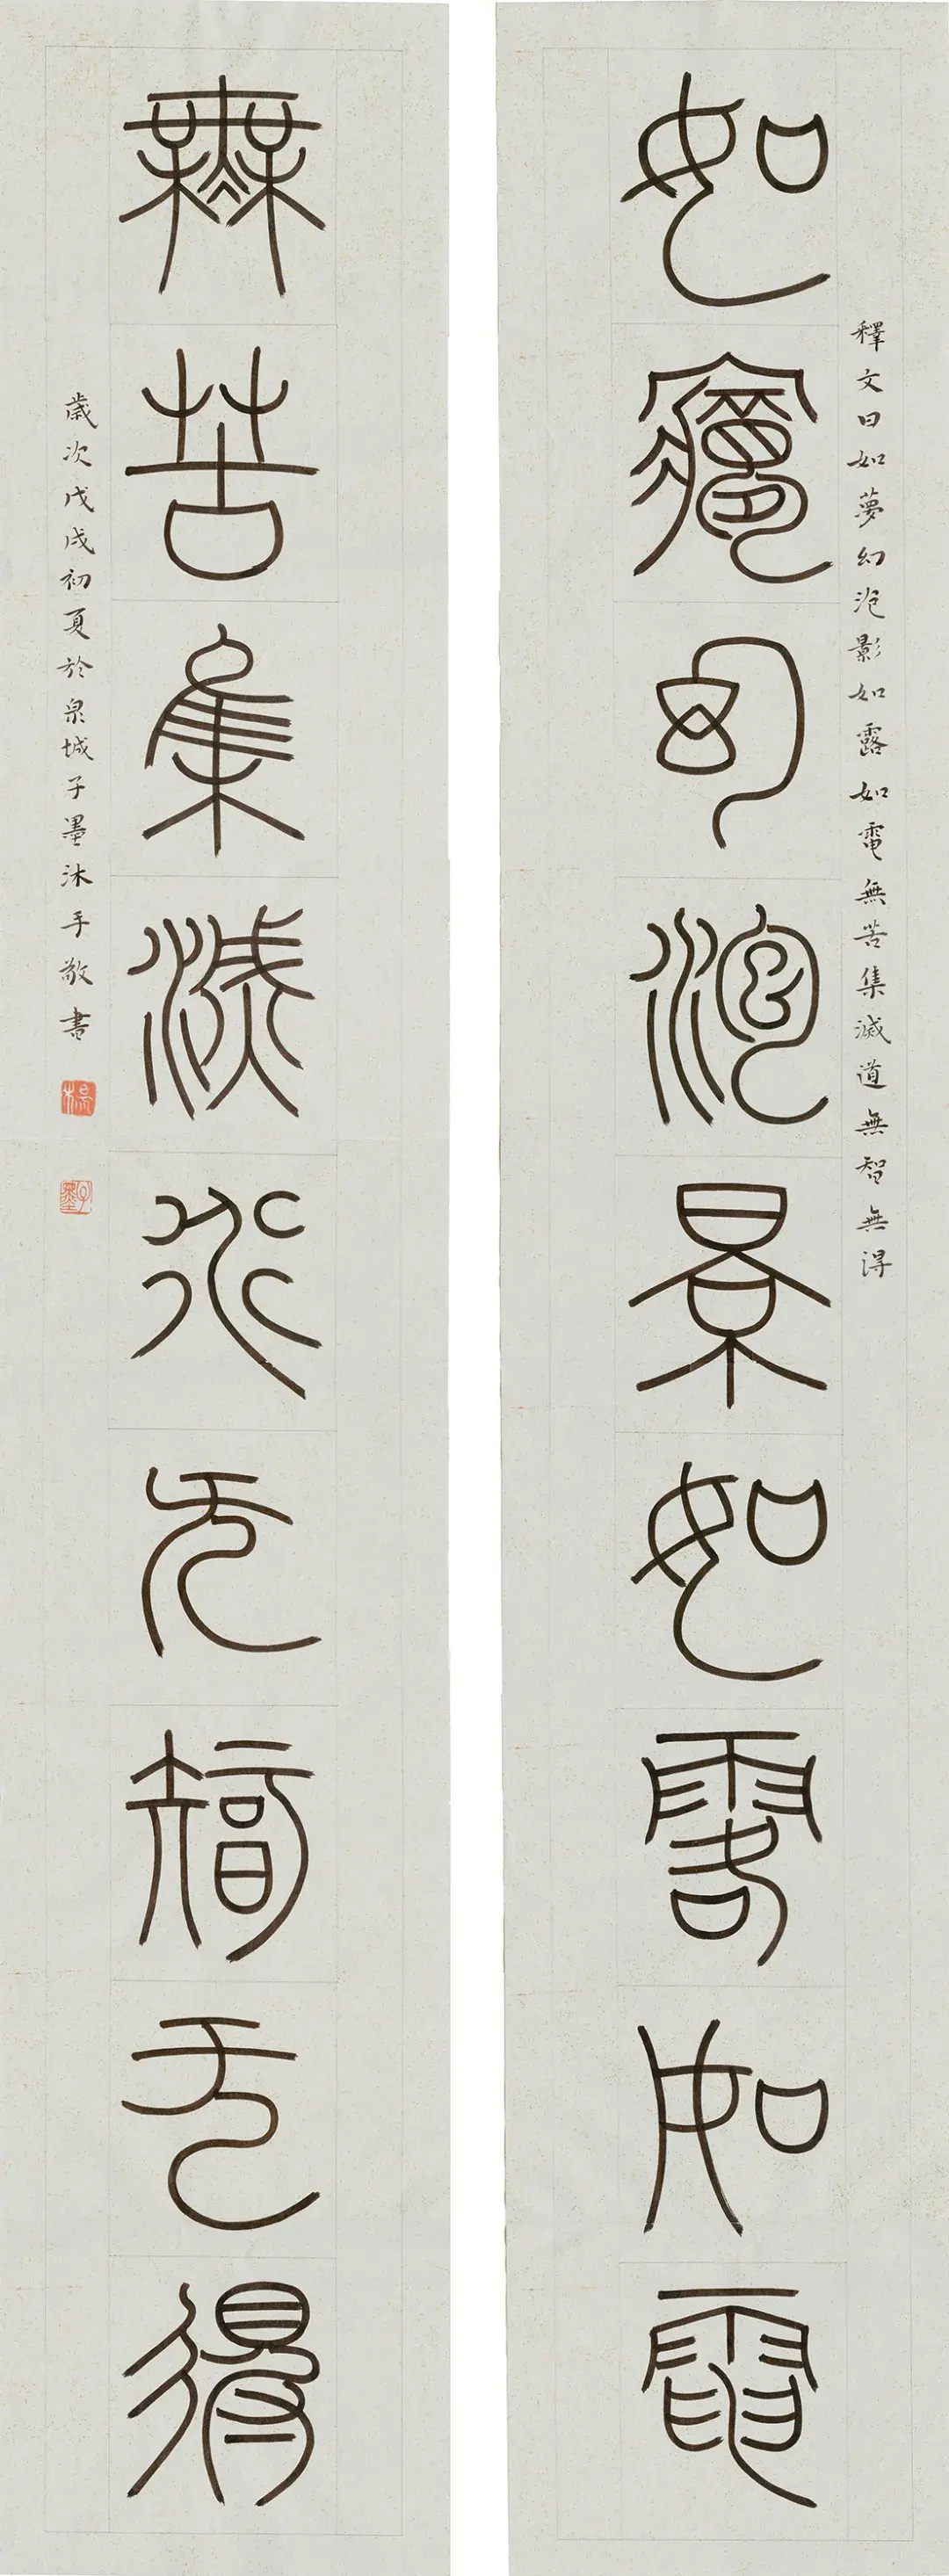 釋文曰如夢幻泡影如露如電無苦集滅道無智無得
如夢幻泡景如露如電
無苦集滅道无智无得
歲次戊戌初夏於泉城子墨沐手敬書
楊
子墨